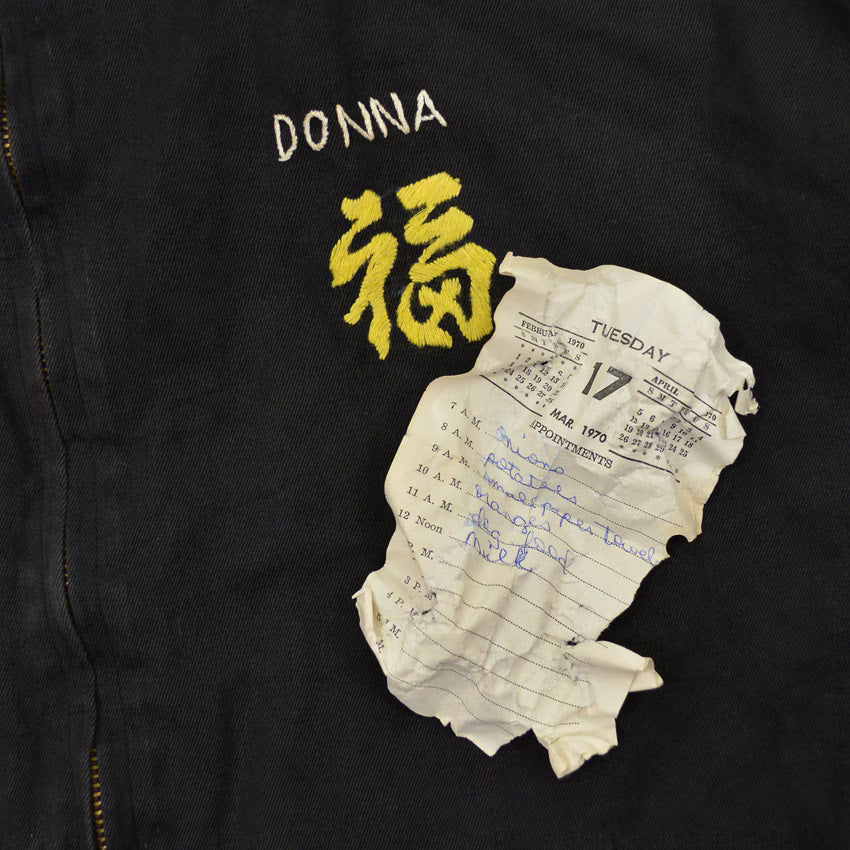 DONNA
福
TUESDAY
FEBRUA 1970
S M T W T F S
17
APRIL 1970
S M T W T F S
MAR. 1970
APPOINTMENTS
7 A.M. onions
8 A.M. potatoes
9 A.M. small paper towel
10 A.M. oranges
11 A.M. dog food
12 Noon Milk
P. M.
3 P. M
4 P. M.
5 P. M.
M.